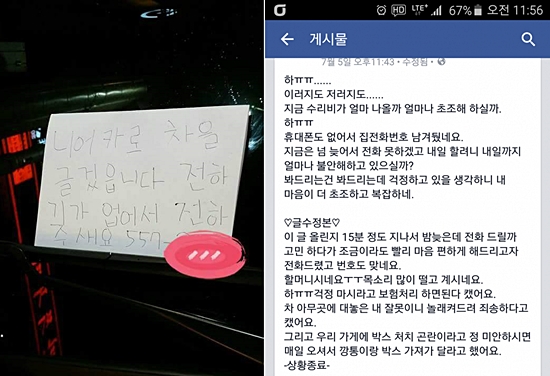 니어카로 차을
글겄읍니다 전하
기가 업어서 전하
주세요 557-
HD LTE 67% 오전 11:56
게시물
7월 5일 오후 11:43 • 수정됨 •
하ㅠㅠ......
이러지도 저러지도......
지금 수리비가 얼마 나올까 얼마나 초조해 하실까.
하ㅠㅠ
휴대폰도 없어서 집전화번호 남겨뒀네요.
지금은 넘 늦어서 전화 못하겠고 내일 할려니 내일까지
얼마나 불안해하고 있으실까?
봐드리는건 봐드리는데 걱정하고 있을 생각하니 내
마음이 더 초조하고 복잡하네.
♡글수정본♡
이 글 올린지 15분 정도 지나서 밤늦은데 전화 드릴까
고민 하다가 조금이라도 빨리 마음 편하게 해드리고자
전화드렸고 번호도 맞네요.
할머니시네요ㅜㅜ목소리 많이 떨고 계시네요.
하ㅠㅠ걱정 마시라고 보험처리 하면된다 캤어요.
차 아무곳에 대놓은 내 잘못이니 놀래켜드려 죄송하다고
캤어요.
그리고 우리 가게에 박스 처치 곤란이라고 정 미안하시면
매일 오셔서 깡통이랑 박스 가져가 달라고 했어요.
-상황종료-